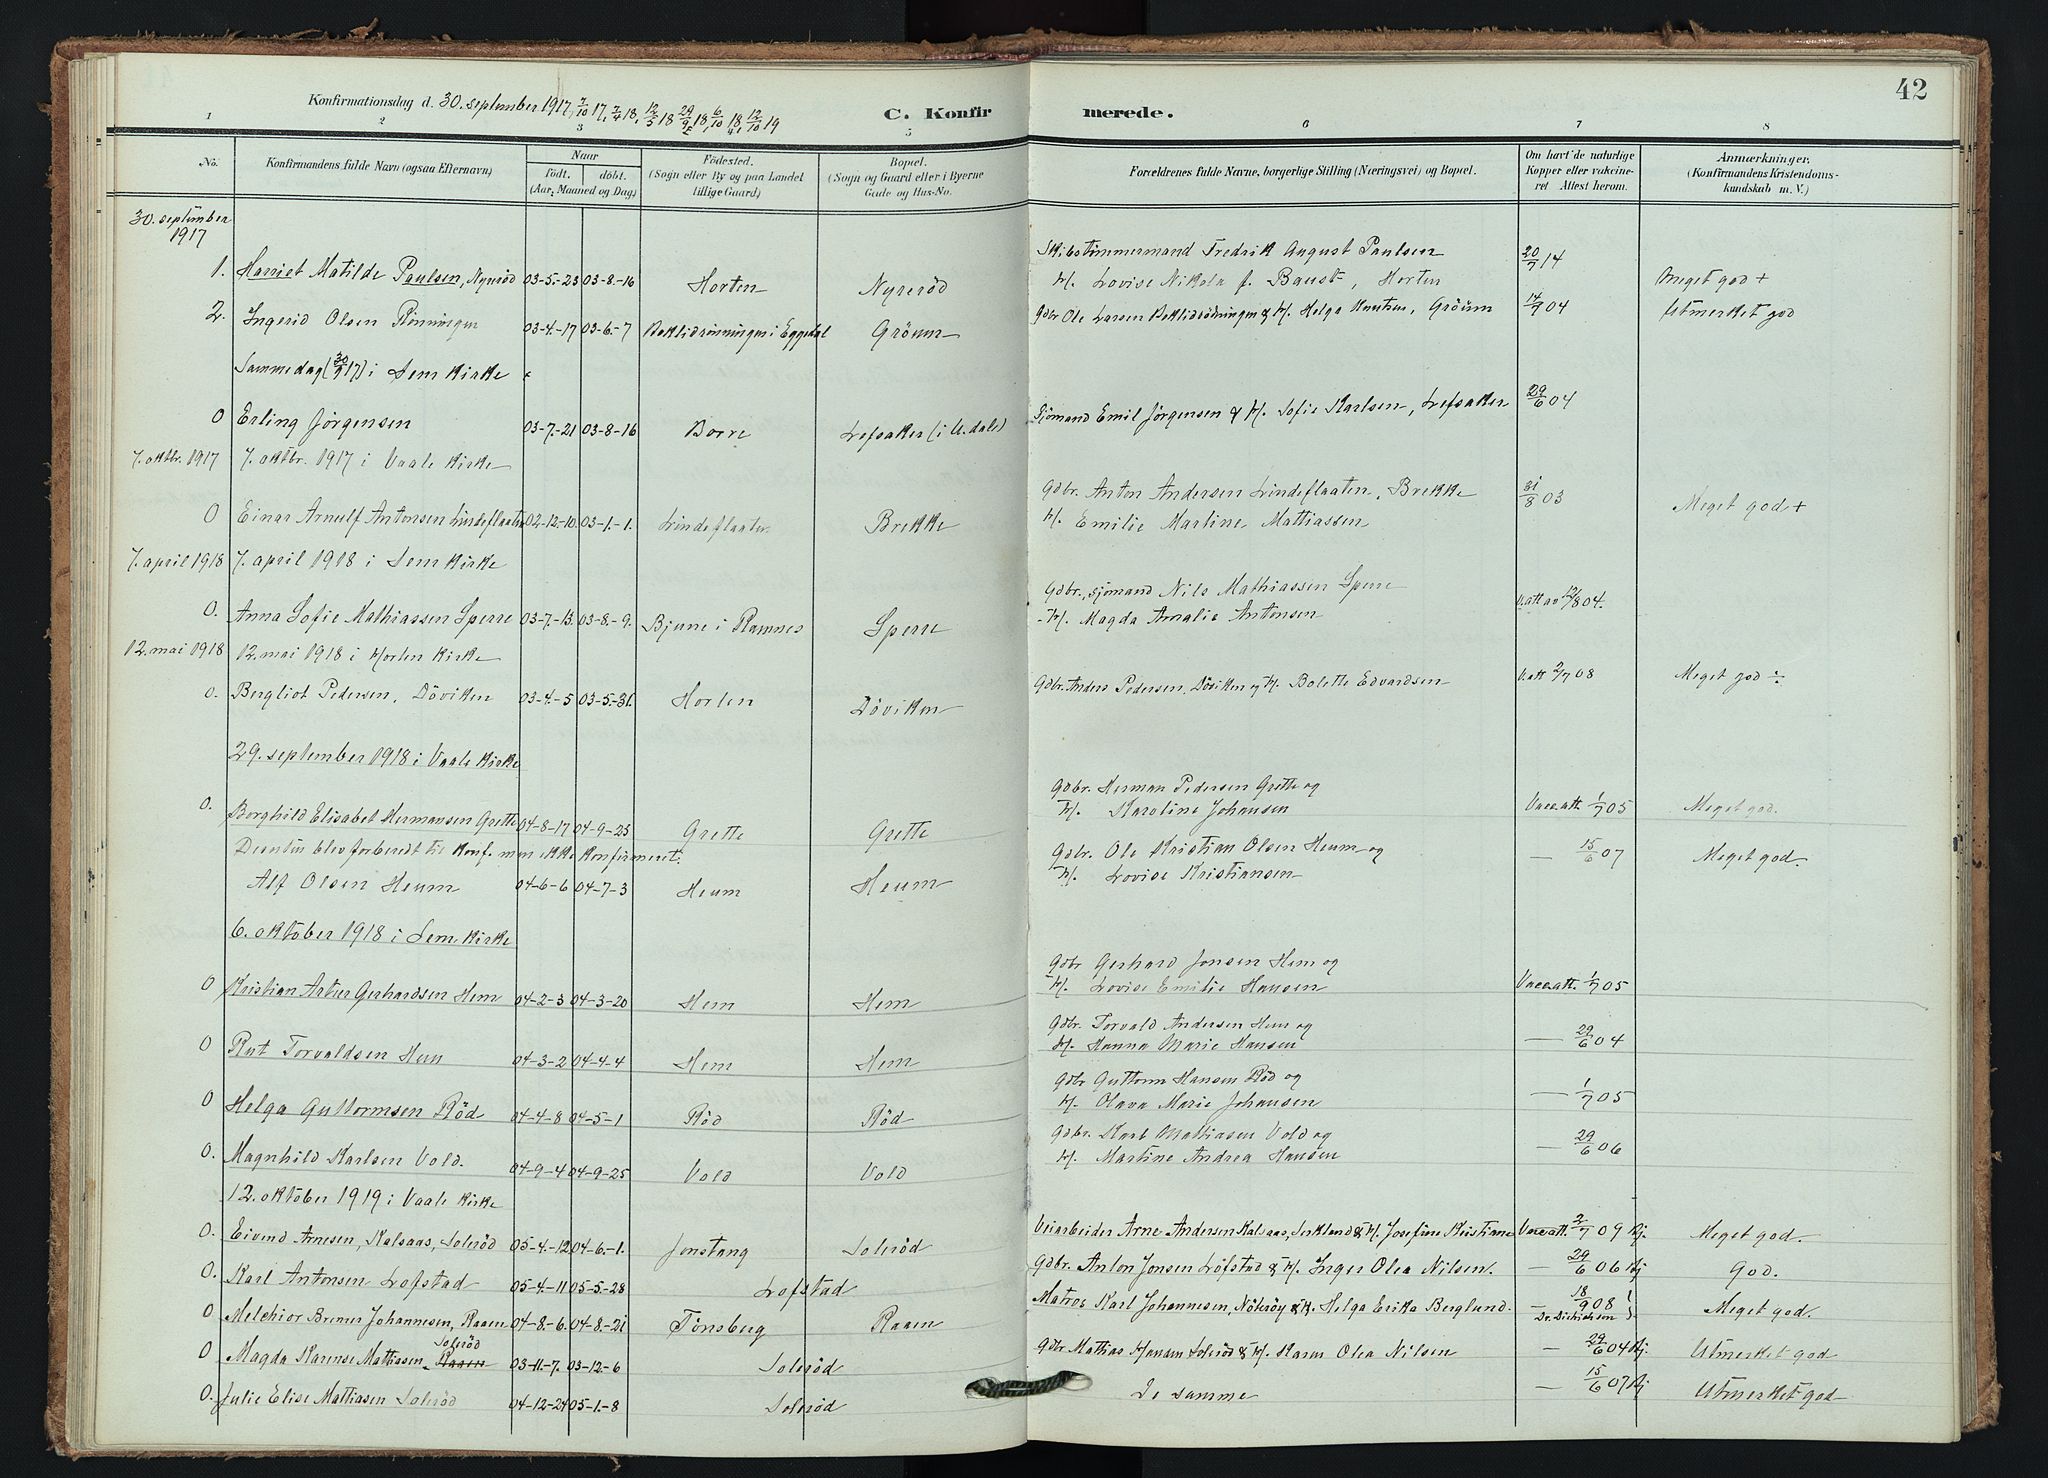 42
Konfirmationsdag d. 30. september 1917, 7/10 17, 7/4 18, 12/5 18 29/9 18, 6/10 18, 12/10 19
C. Konfir merede.
1 2 3 4 5 6 7 8
No. Konfirmandens fulde Navn (ogsaa Efternavn) Naar født. døbt. (Aar, Maaned og Dag) Fødested. (Sogn eller By og paa Landet tillige Gaard) Bopæl. (Sogn og Gaard eller i Byerne Gade og Hus-No. Forældrenes fulde Navne, borgerlige Stilling (Næringsvei) og Bopæl. Om havt de naturlige Kopper eller vakcineret Attest herom. Anmærkninger. (Konfirmandens Kristendomskundskab m. V.)
30. september
1917
Skibstømmermand Fredrik August Paulsen
1. Harriet Matilde Paulsen, Nyrerød 03-5-23 03-8-16 Horten Nyrerød H. Lovise Nikola f. Baust, Horten 20/7 14 Meget god +
2. Ingerid Olsen Rønningen 03-4-17 03-6-7 i Eggedal Grøum Gdbr Ole Larsen & H. Helga Knutsen, Grøum 14/9 04 Utmerket god
Samme dag (30/9 17) i Sem kirke
0 Erling Jørgensen 03-7-21 03-8-16 Borre Lefsaker (i U.dal) Sjømand Emil Jørgensen & H. Sofie Karlsen, Lefsaker 29/6 04
7. oktbr. 1917 7. oktbr. 1917 i Vaale kirke
Gdbr. Anton Andersen Lindeflaaten, Brekke
0 Einar Arnulf Antonsen Lindeflaaten 02-12-10 03-1-1. Lindeflaaten Brekke H. Emilie Martine Mattiassen 31/8 03 Meget god +
7. april 1918 7. april 1918 i Sem kirke
Gdbr., sjømand Nils Mathiassen Sperre
0. Anna Sofie Mathiassen Sperre 03-7-13. 03-8-9. Bjune i Ramnes Sperre H. Magda Amalie Antonsen V.att av 12/8 04.
12. mai 1918 12. mai 1918 i Horten kirke
0. Bergliot Pedersen, Døviken 03-4-5 03-5-31. Horten Døviken Gdbr. Anders Pedersen, Døviken og H. Bolette Edvardsen V.att 2/7 08 Meget god ÷
29. september 1918 i Vaale kirke
Gdbr. Herman Pedersen Grette og
0. Borghild Elisabet Hermansen Grette 04-8-17 04-9-25 Grette Grette H. Karoline Johansen Vacc.att. 1/7 05 Meget god.
Desuten blev forberedt til konf. men ikke konfirmeret: Gdbr. Ole Kristian Olsen Heum og
Alf Olsen Heum 04-6-6 04-7-3 Heum Heum H. Lovise Kristiansen — 15/6 07 Meget god.
6. oktober 1918 i Sem kirke
Gdbr Gerhard Jonsen Hem og
0 Kristian Artur Gerhardsen Hem 04-2-3 04-3-20 Hem Hem H. Lovise Emilie Hansen Vacc.att. 1/7 05
Gdbr. Torvald Andersen Hem og
0 Rut Torvaldsen Hem 04-3-2 04-4-4 Hem Hem H. Hanna Marie Hansen — 29/6 04
Gdbr Guttorm Hansen Rød og
0 Helga Guttormsen Rød 04-4-8 04-5-1 Rød Rød H. Olava Marie Johansen — 1/7 05
Gdbr. Karl Mattiasen Vold og
0. Magnhild Karlsen Vold. 04-9-4 04-9-25 Vold Vold H. Martine Andrea Hansen — 29/6 06
12. oktober 1919 i Vaale kirke
0. Eivind Arnesen, Kalsaas, Solerød 05-4-12 04-6-1. Jonstang Solerød Veiarbeider Arne Andersen Kalsaas, & H. Josefine Kristiane Vacc.att. 2/7 09 Rj. Meget god.
0. Karl Antonsen Lofstad 05-4-11 05-5-28 Lofstad Gdbr. Anton Jonsen Lofstad & H. Inger Olea Nilsen. — 29/6 06 Rj God.
0 Melchior Bremer Johannesen, Raaen 04-8-6. 04-8-21 Tønsberg Raaen Matros Karl Johannesen, Nøterøy & H. Helga Erika Berglund. — 18/9 08 Meget god.
0 Magda Karense Mattiasen Raaen Solerød 03-11-7. 03-12-6 Solerød Gdbr Mathias Hansen Solerød & H. Karen Olea Nilsen — 29/6 04 Rj. Utmerket god
0. Julie Elise Mattiasen Solerød 04-12-24 05-1-8 Solerød De samme — 15/6 07 Rj Utmerket god